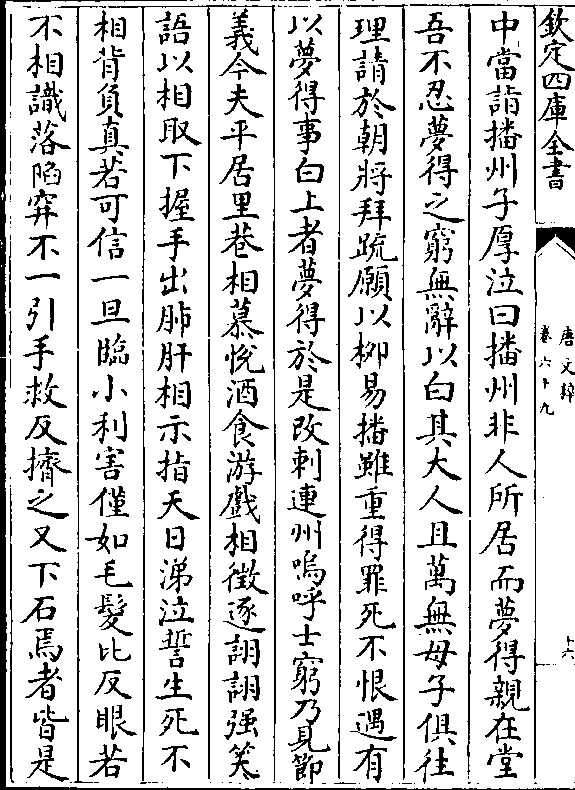 欽定四庫全書
唐文粹
卷六十九
十六
中當詣播州子厚泣曰播州非人所居而夢得親在堂
吾不忍夢得之窮無辭以白其大人且萬無母子俱往
理請於朝將拜疏願以柳易播雖重得罪死不恨遇有
以夢得事白上者夢得於是改刺連州嗚呼士窮乃見節
義今夫平居里巷相慕悅酒食游戲相徵逐詡詡强笑
語以相取下握手出肺肝相示指天日涕泣誓生死不
相背負真若可信一旦臨小利害僅如毛髮比反眼若
不相識落陷穽不一引手救反擠之又下石焉者皆是